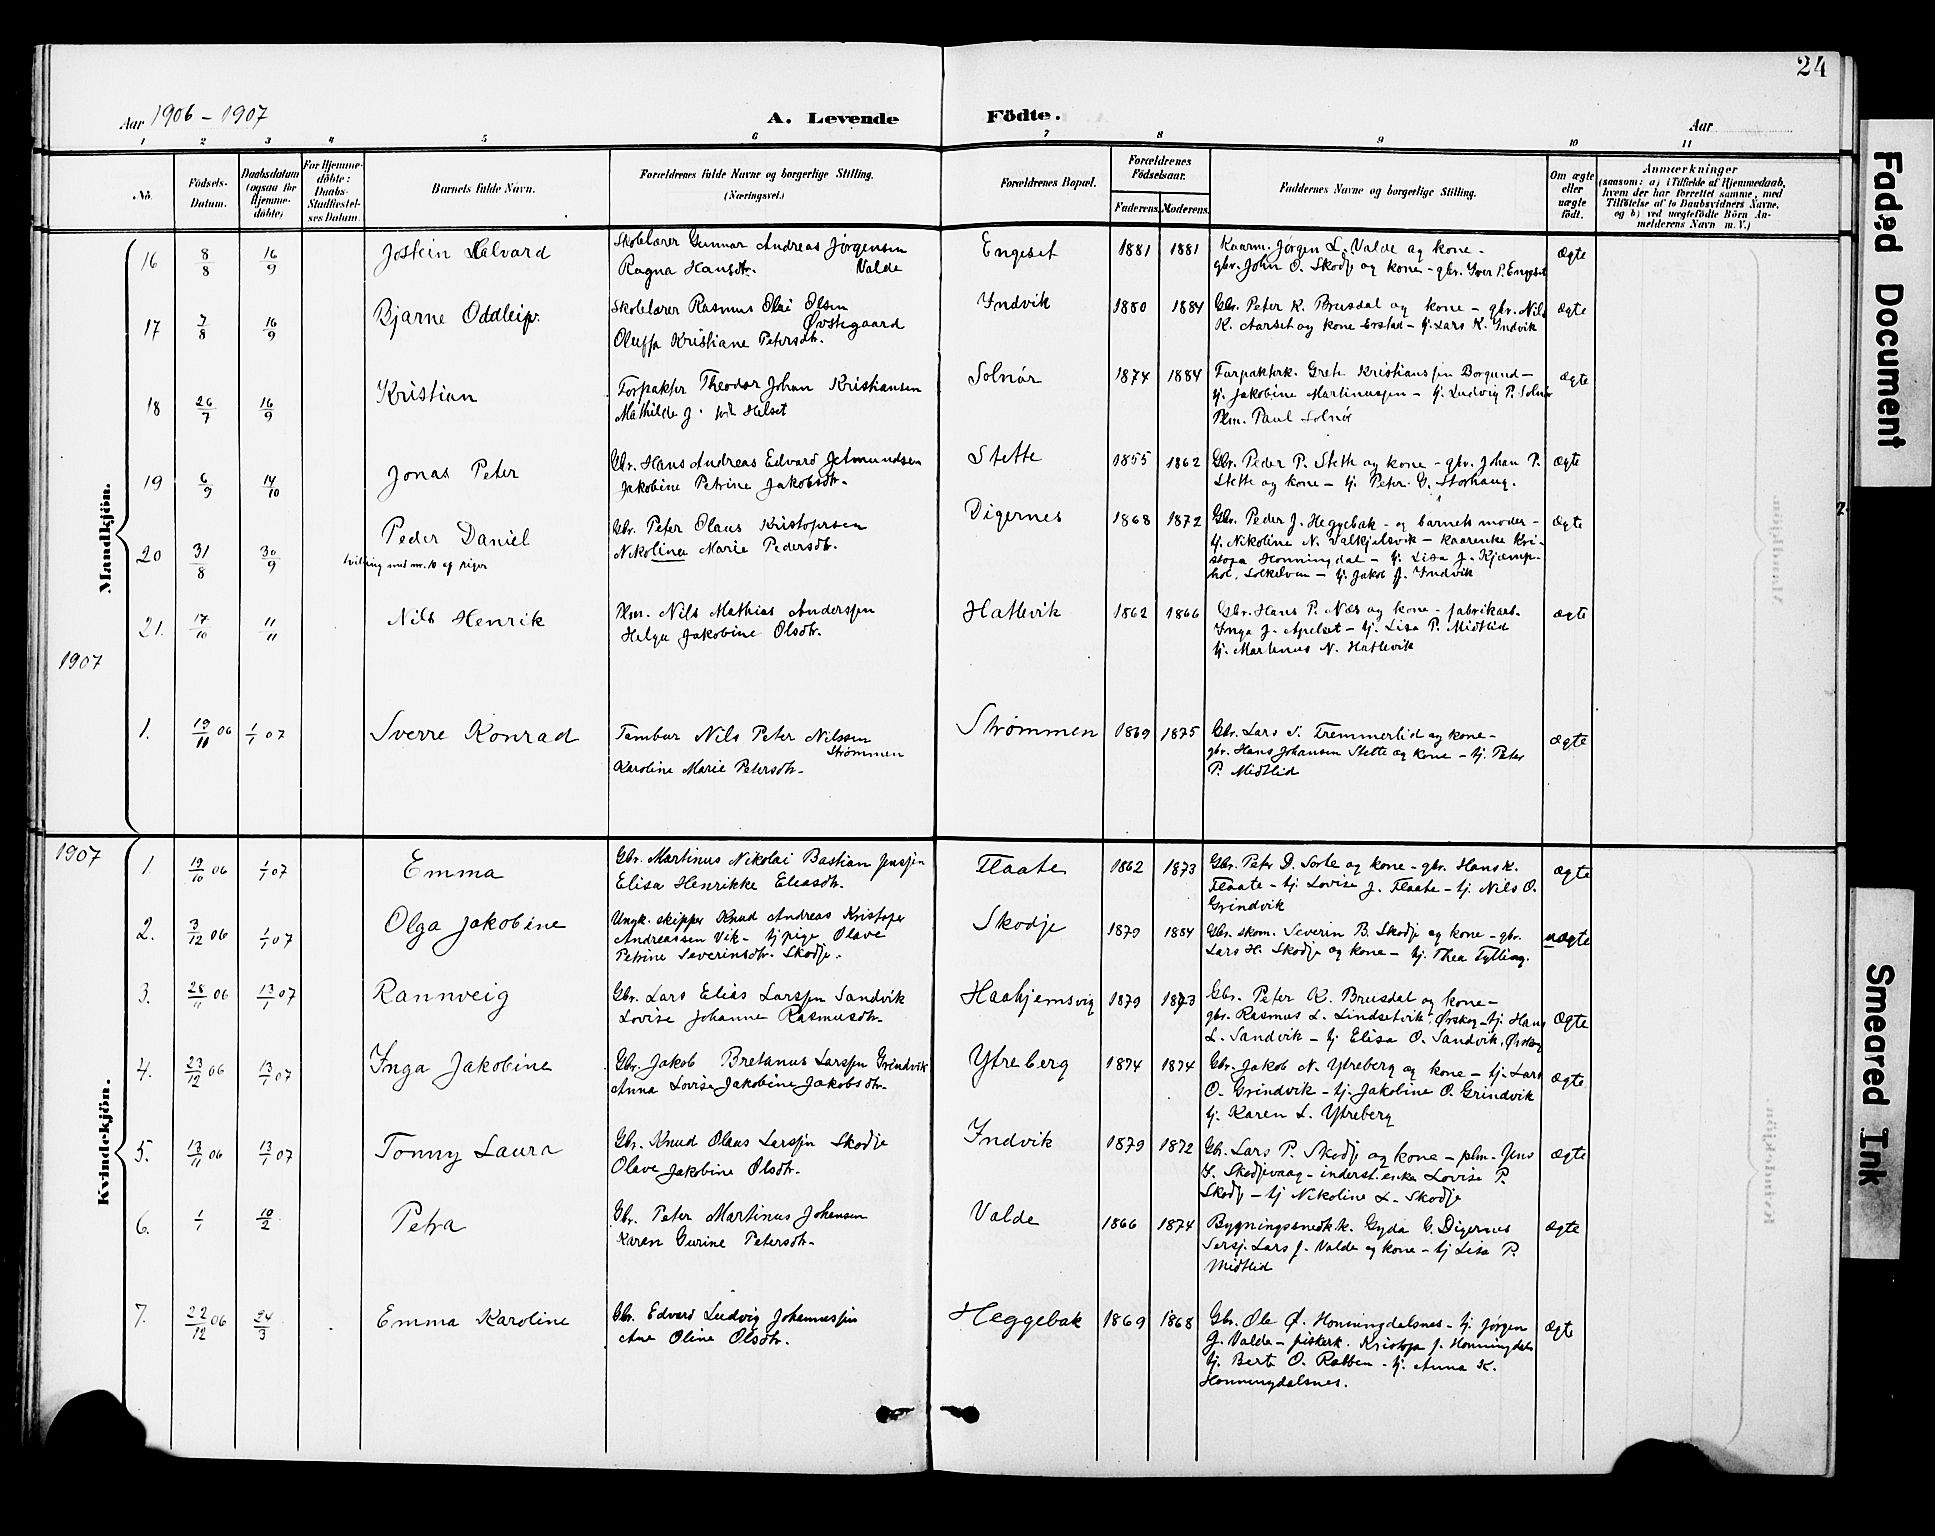 24
Aar 1906 – 1907
A. Levende Födte.
Aar
1 2 3 4 5 6 7 8 9 10 11
No.
Födsels-
Datum.
Daabsdatum
(ogsaa for
Hjemme-
döbte)
For Hjemme-
döbte:
Daabs-
Stadfæstel-
ses Datum.
Barnets fulde Navn.
Forældrenes fulde Navne og borgerlige Stilling.
(Næringsvei.)
Forældrenes Bopæl.
Forældrenes
Födselsaar.
Faderens. Moderens.
Faddernes Navne og borgerlige Stilling.
Om ægte
eller
uægte
født.
Anmærkninger
(saasom: a) i Tilfælde af Hjemmedaab,
hvem der har forrettet samme, med
Tilföielse af to Daabsvidners Navne,
og b) ved uægtefödte Börn An-
melderens Navn m. V.)
Mandkjön.
16 8/8 16/9 Jostein Halvard
Skolelærer Gunnar Andreas Jørgensen
Valde
Ragna Hansdtr.
Engeset 1881 1881
Kaarm. Jørgen L. Valde og kone –
gbr. John O. Skodje og kone – gbr. Iver P. Engeset
ægte
17 7/8 16/9 Bjarne Oddleiv
Skolelærer Rasmus Olai Olsen
Øvstegaard
Oluffa Kristiane Petersdtr.
Indvik 1880 1884
Gbr. Peter K. Brusdal og kone – gbr. Nils
K. Aarset og kone Erstad – tj. Lars K. Indvik
ægte
18 26/7 16/9 Kristian
Forpakter Theodor Johan Kristiansen
Mathilde J. Helset
Solnør 1874 1884
Forpakterk. Grete Kristianssen Borgund –
tj. Jakobine Martinussen – tj. Ludvig P. Solnør
Plm. Paul Solnør
ægte
19 6/9 14/10 Jonas Peter
Gbr. Hans Andreas Edvard Jetmundsen
Jakobine Petrine Jakobsdtr.
Stette 1855 1862
Gbr. Peder P. Stette og kone – gbr. Johan P.
Stette og kone – tj. Peter G. Storhaug.
ægte
20 31/8 30/9 Peder Daniel
tvilling med nr. 10 af piger
Gbr. Peter Olaus Kristofersen
Nikolina Marie Pedersdtr.
Digernes 1868 1872
Gbr. Peder J. Heggebak – og barnets moder –
tj. Nikoline N. Valkjelsvik – kaarenke Kri-
stofa Honningdal – tj. Lisa J. Kjæmp-
hol, Solkelven – tj. Jakob J. Indvik
ægte
21. 17/10 11/11 Nils Henrik
Plm. Nils Mathias Anderssen
Helga Jakobine Olsdtr.
Hatlevik 1862 1866
Gbr. Hans P. Næs og kone – fabrikarb.
Inga J. Apelset – tj. Lisa P. Midtlid
tj. Martinus N. Hatlevik
ægte
1907
1. 19/11 06 1/1 07 Sverre Konrad
Tambur Nils Peter Nilssen
Strømmen
Karoline Marie Petersdtr.
Strømmen 1869 1875
Gbr. Lars S. Fremmerlid og kone –
gbr. Hans Johansen Stette og kone – tj. Peter
P. Midtlid
ægte
Kvindekjön.
1907
1. 19/10 06 1/1 07 Emma
Gbr. Martinus Nikolai Bastian Jenssen
Elisa Henrikke Eliasdtr.
Flaate 1862 1873
Gbr. Peter D. Sorte og kone – gbr. Hans K.
Flaate – tj. Lovise J. Flaate – tj. Nils O.
Grindvik
ægte
2. 3/12 06 1/1 07 Olga Jakobine
Ungk. skipper Knud Andreas Kristofer
Andreassen Vik – tj pige Olave
Petrine Severinsdtr. Skodje.
Skodje 1879 1884
Gbr. skom. Severin B. Skodje og kone – gbr.
Lars H. Skodje og kone – tj. Thea Fylling.
uægte
3. 28/11 06 13/1 07 Rannveig
Gbr. Lars Elias Larssen Sandvik
Lovise Johanne Rasmusdtr.
Haahjemsvig 1879 1873
Gbr. Peter K. Brusdal og kone –
gbr. Rasmus L. Lindsetvik, Ørskog – tj. Hans
L. Sandvik – tj Elisa O. Sandvik, Ørskog
ægte
4. 23/12 06 13/1 07 Inga Jakobine
Gbr. Jakob Bretanus Larssen Grindvik
Anna Lovise Jakobine Jakobsdtr.
Ytreberg 1874 1874
Gbr. Jakob N. Ytreberg og kone – tj. Lars
O. Grindvik – tj. Jakobine O. Grindvik
tj. Karen L. Ytreberg
ægte
5. 13/11 06 13/1 07 Tonny Laura
Gbr. Knud Olaus Larssen Skodje
Olave Jakobine Olsdtr.
Indvik 1879 1872
Gbr. Lars P. Skodje og kone – plm. Jens
I. Skodjevaag – inderst.enke Lovise P.
Skodje – tj Nikoline L. Skodje
ægte
6. 1/1 10/2 Petra
Gbr. Peter Martinus Johansen
Karen Gurine Petersdtr.
Valde 1866 1874
Bygningssnedk.k. Gyda G. Digernes
Sersj. Lars J. Valde og kone – tj Lisa P.
Midtlid
ægte
7. 22/12 06 24/3 Emma Karoline
Gbr. Edvard Ludvig Johannessen
Ane Oline Olsdtr.
Heggebak 1869 1868
Gbr. Ole Ø. Honningdalsnes – tj. Jørgen
J. Valde – fiskerk. Kristofa J. Honningdal
tj. Berte O. Ratten – tj. Anna K.
Honningdalsnes.
ægte
Faded Document
Smeared Ink